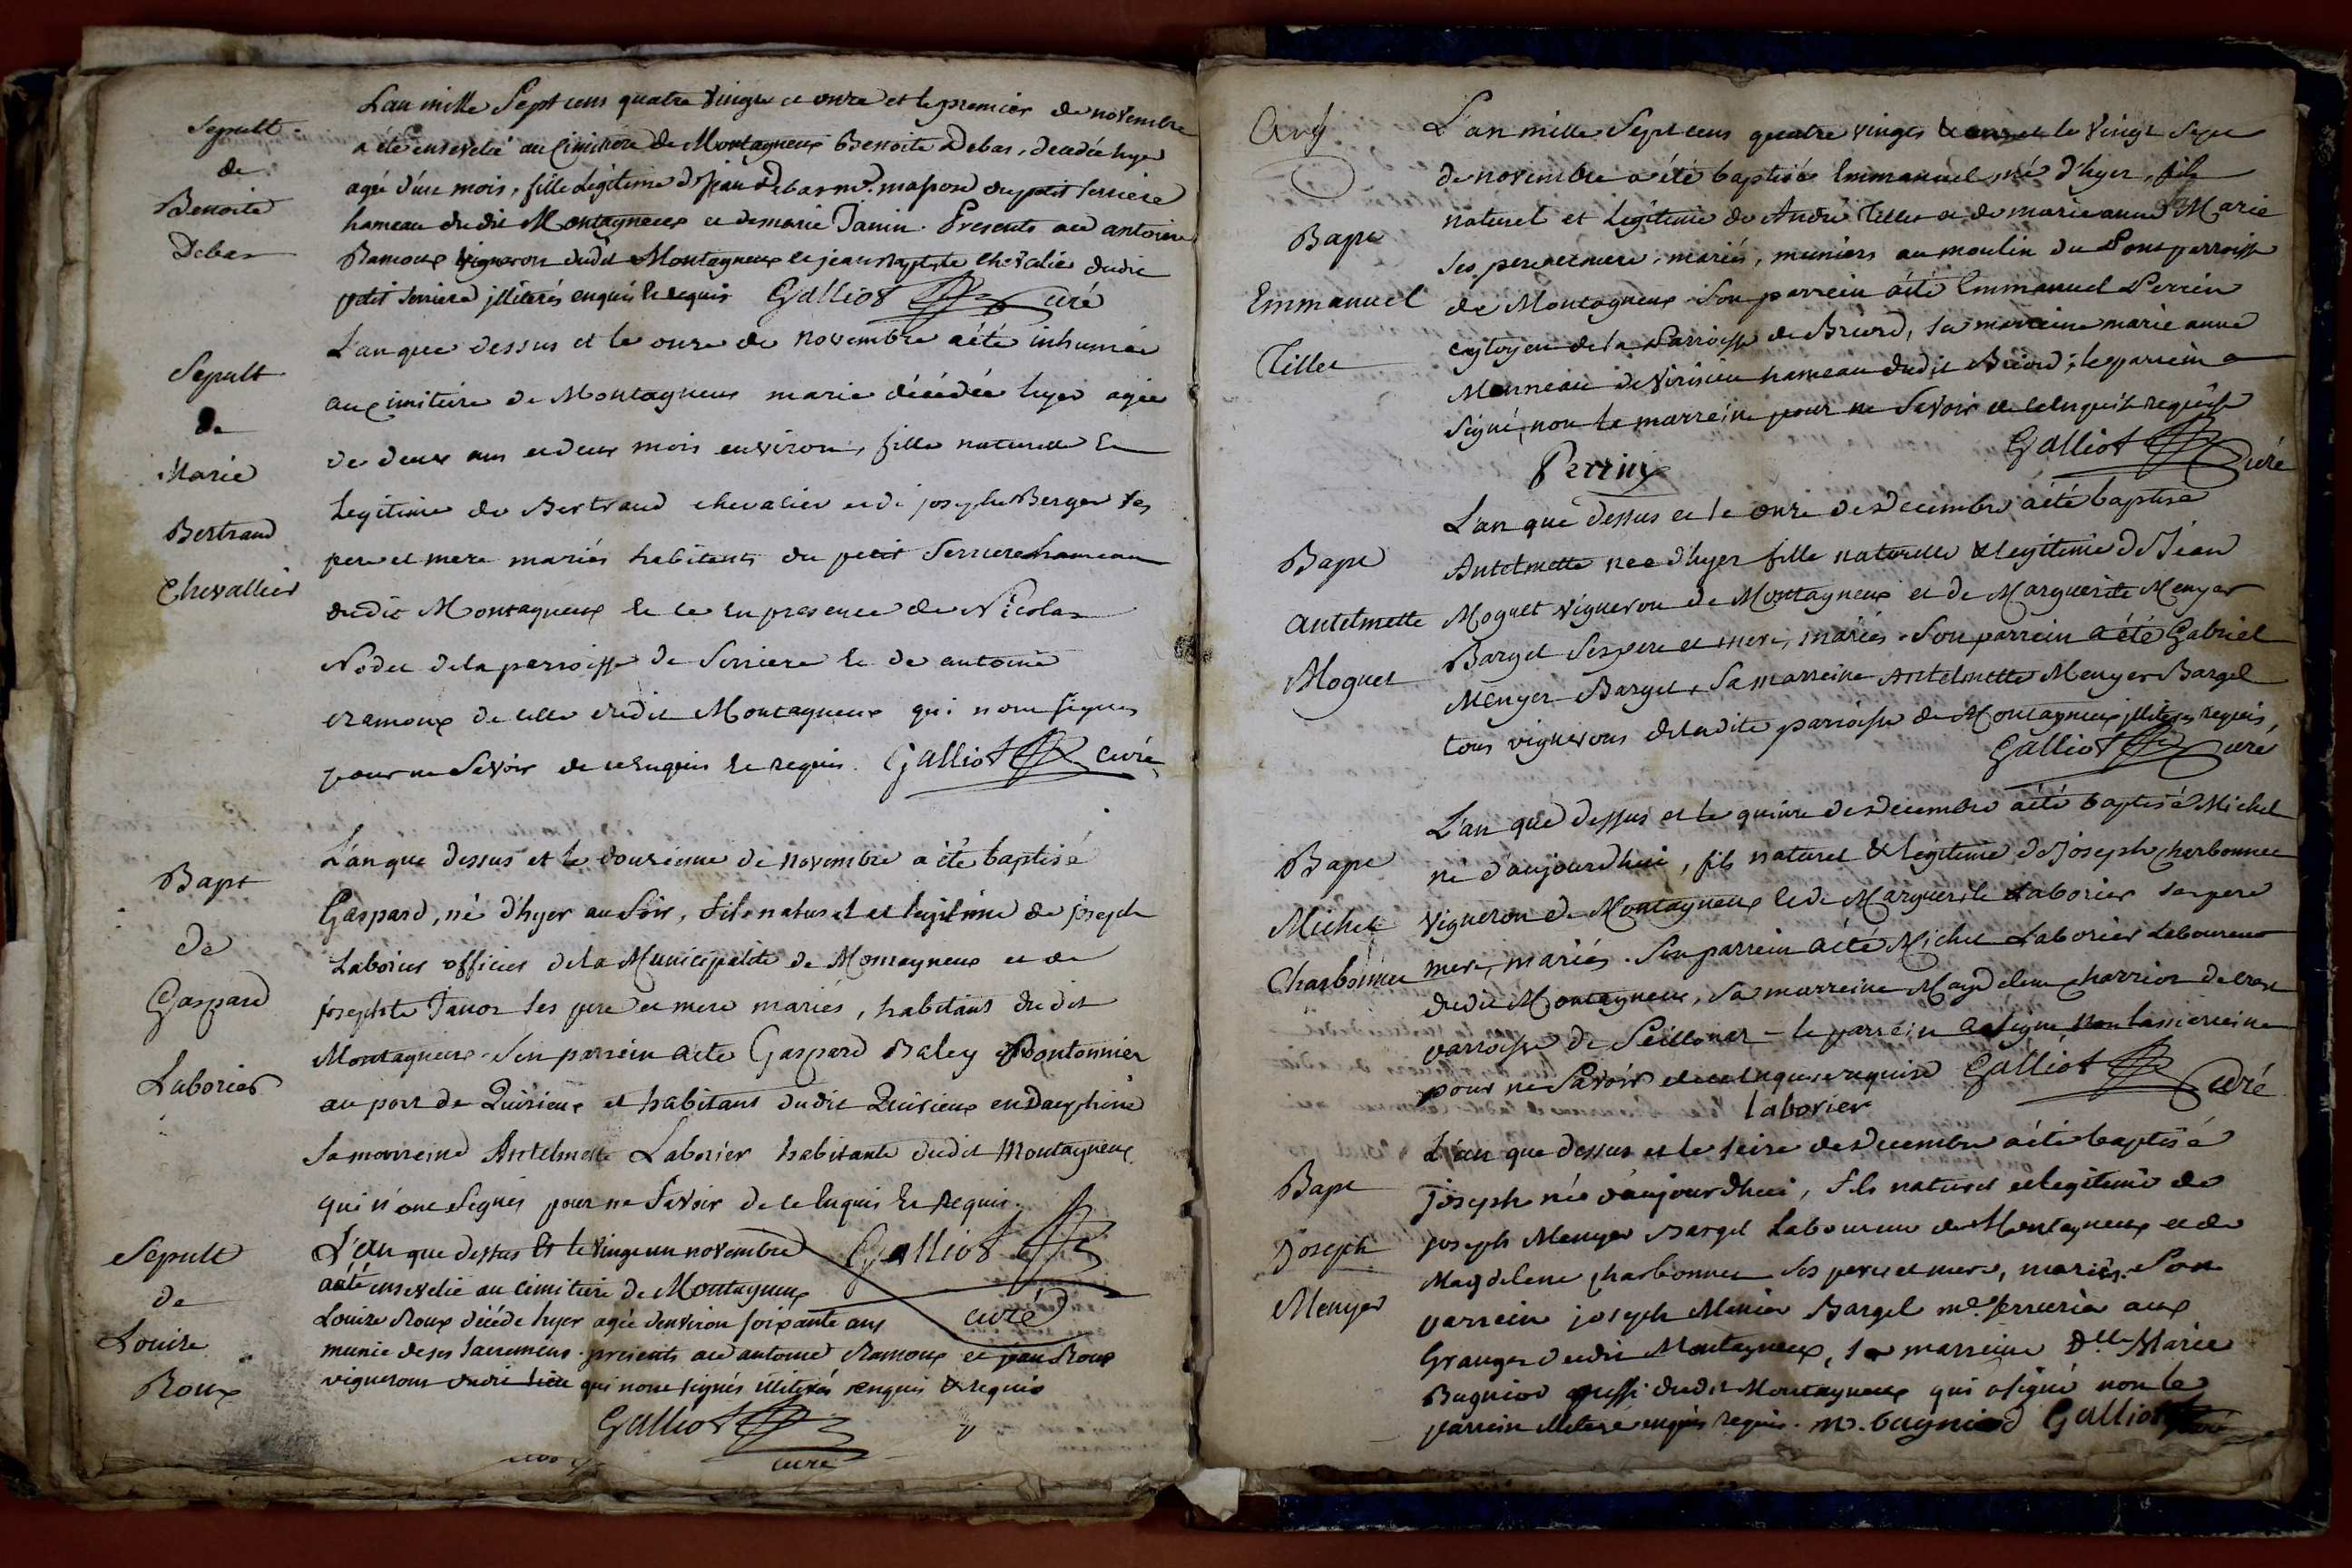 Sepult
de
Benoite
Debas
L'an mille Sept cens quatre vingt et onze et le premier de novembre
a été ensevelie au Cimitiere de Montagneux Benoite Debas, decedée hyer
agée d'un mois, fille Légitime de Jean Debas md. masson du petit Serriere
hameau dudit Montagneux et de marie Janin. Presents ace antoine
Ramoux vigneron dudit Montagneux et jean Baptiste chevalier dudit
petit Serriere illiterés enquis et requis Galliot Curé
Sepult
De
Marie
Bertrand
Chevallier
L'an que dessus et le onze de novembre a été inhumée
au cimitiere de Montagneux marie décédée hyer agée
de deux ans et deux mois environ, fille naturelle et
legitime de Bertrand chevalier et de josephe Berger ses
pere et mere mariés habitants du petit Serriere hameau
dudit Montagneux et ce en presence de Nicolas
Nodet de la parroisse de Serriere et de antoine
ramoux de celle dudit Montagneux qui n'ont signes
pour ne Savoir de ce enquis et requis. Galliot curé
Bapt
de
Gaspard
Laborier
L'an que dessus et le douzieme de novembre a été baptisé
Gaspard, né d'hyer au Soir, fils naturel et legitime de joseph
Laborier officier de la Municipalité de Montagneux et de
josephte Janor ses pere et mere mariés, habitans dudit
Montagneux. Son parrein a ete Gaspard Baley Pontonnier
au port de Quirieux et habitant dudit Quirieux en Dauphiné
Sa marreine Antelmette Laborier habitante dudit Montagneux
qui n'ont signés pour ne Savoir de ce enquis et Requis.
Galliot
curé
Sepult
de
Louise
Roux
L'an que dessus et le vingt un novembre
a été ensevelie au cimitiere de Montagneux
Louise Roux décédé hyer agée d'environ soixante ans
munie de ses sacremens. presents ace antoine Ramoux et jean Roux
vignerons dudit lieu qui n'ont signés illiterés enquis & requis
Galliot
curé
Bapt
Emmanuel
Tillet
L'an mille Sept cens quatre vingts & onze et le vingt Sept
de novembre a été baptisé Emmanuel, né d'hyer, fils
naturel et Légitime de André Tillet et de marie anne Marie
Ses pere et mere, mariés, muniers au moulin du Pont parroisse
de Montagneux. Son parrein a été Emmanuel Perrin
citoyen de la Parroisse de Briord, sa marreine marie anne
Monneau de Verisieu hameau dudit Briord; le parrein a
signé, non la marreine pour ne Savoir de ce enquise requise
Perrin
Galliot Curé
Bapt
Antelmette
Moguet
L'an que dessus et le onze de Decembre a été baptisé
Antelmette née d'hyer fille naturelle & legitime de Jean
Moguet vigneron de Montagneux et de Marguerite Menyer
Bargel Ses pere et mere, mariés. Son parrein a été Gabriel
Menyer Bargel, Sa marreine Antelmette Menyer Bargel
tous vignerons de ladite parroisse de Montagneux illiterés requis,
Galliot Curé
Bapt
Michel
Charbonnet
L'an que dessus et le quinze de Decembre a été baptisé Michel
né d'aujourdhui, fils naturel & legitime de Joseph Charbonnet
vigneron de Montagneux et de Marguerite Laborier ses pere
mere, mariés. Son parrein a été Michel Laborier Laboureur
dudit Montagneux, Sa marreine Magdeleine charrior de cran
parroisse de Seillonas - le parrein a signé non la marreine
pour ne Savoir de ce enquise requise Galliot Curé
Laborier
Bapt
Joseph
Menyer
L'an que dessus et le seize de Decembre a été baptisé
joseph né d'aujourdhui, fils naturel et legitime de
joseph Menyer Bargel Laboureur de Montagneux et de
Magdelene charbonnet Ses pere et mere, mariés. Son
parrein joseph Menier Bargel md. serrurier aux
Granges dudit Montagneux, sa marreine Dlle Marie
Bugniod aussi dudit Montagneux qui a signé non le
parrein illiteré enquis requis. m. bugniod Galliot curé